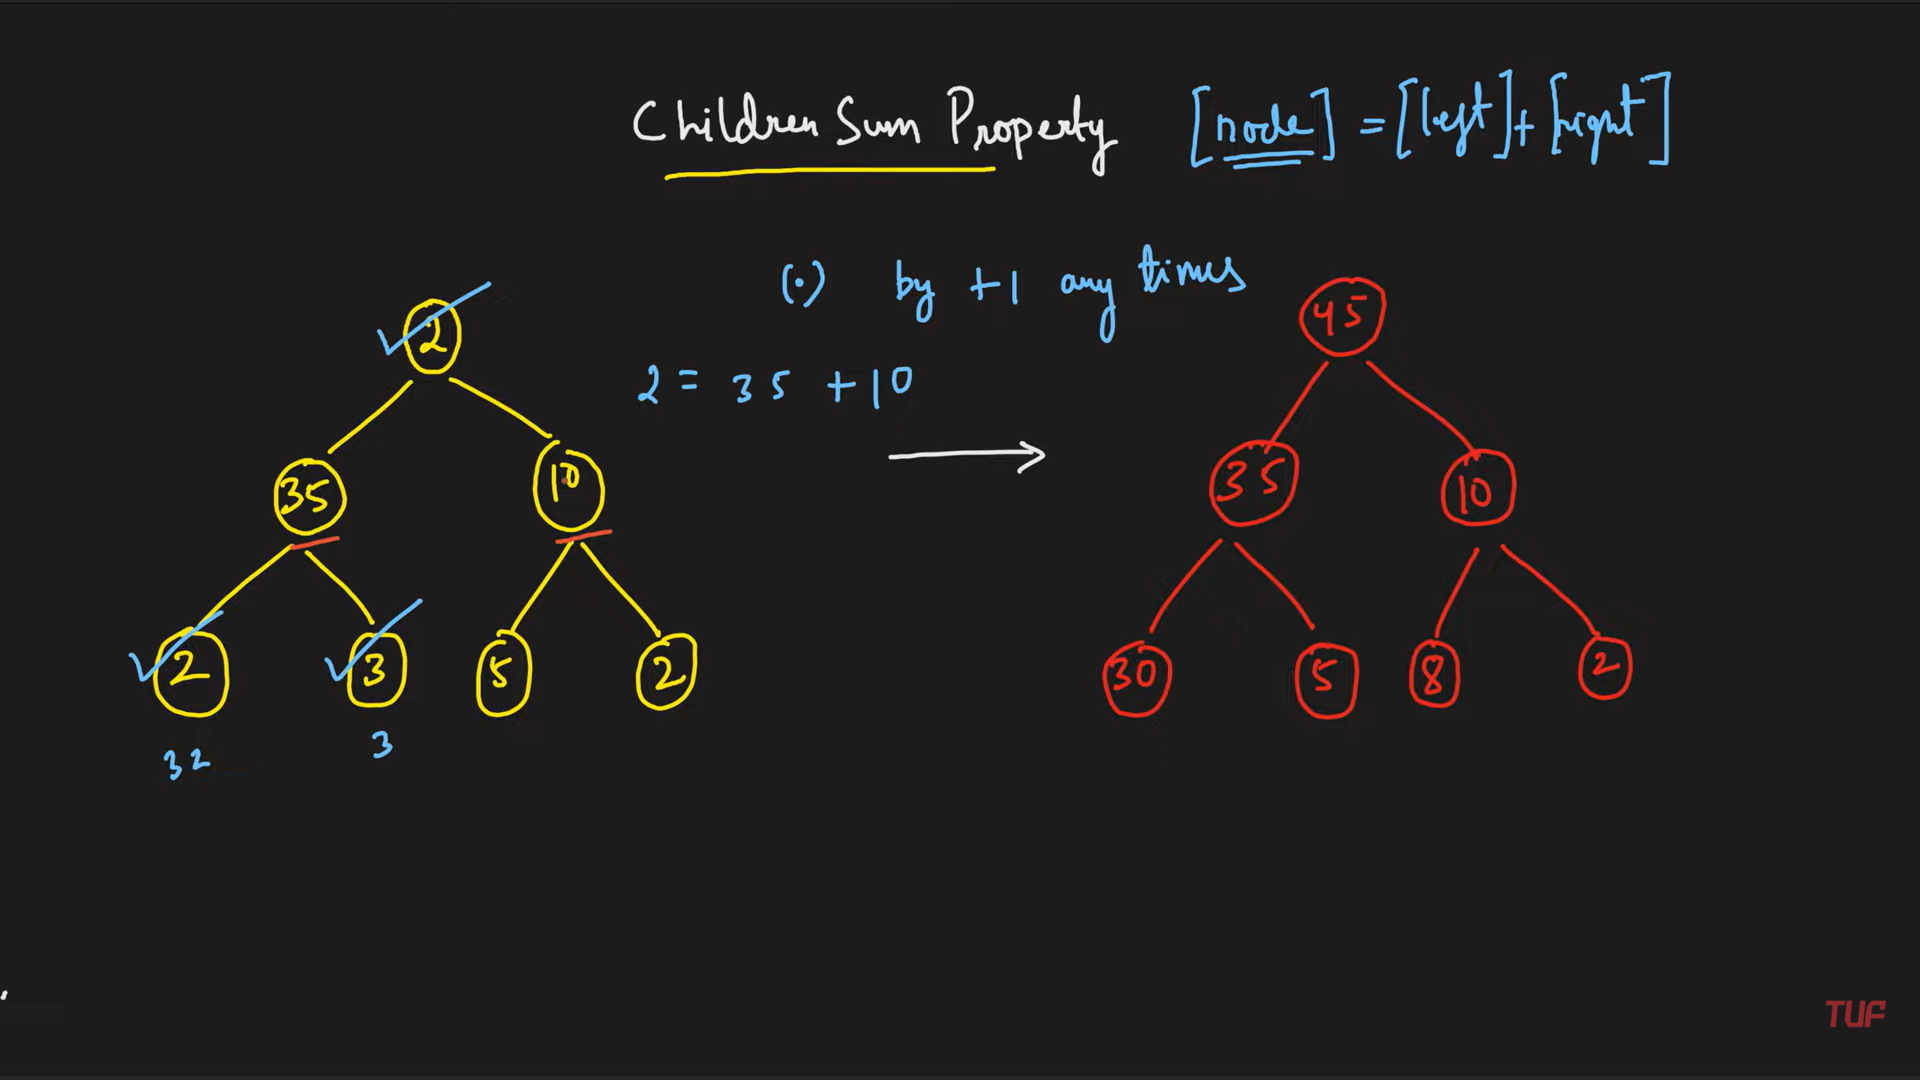 Children Sum Property [node] = [left] + [right]
(.) by +1 any times
2 = 35 + 10
2
35 10
2 3 5 2
32 3
45
35 10
30 5 8 2
TUF